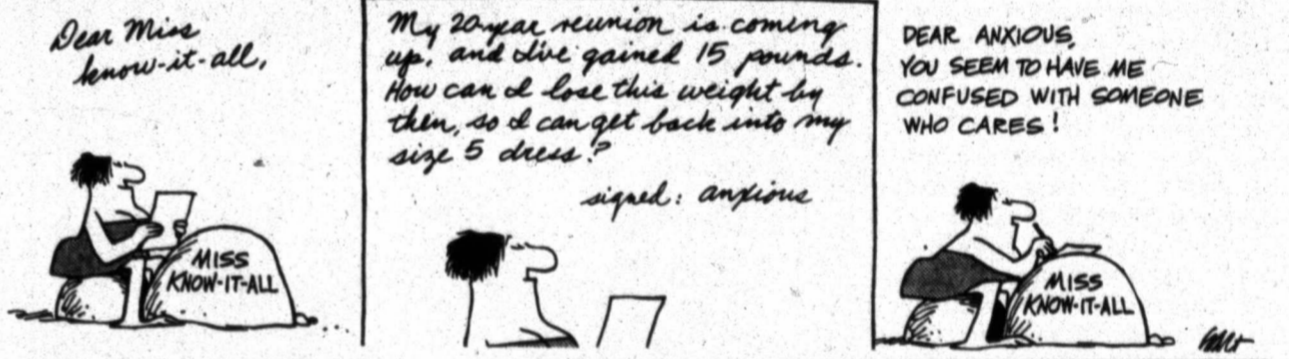 Dear Miss
know-it-all,
MISS
KNOW-IT-ALL
My 20-year reunion is coming
up, and I've gained 15 pounds.
How can I lose this weight by
then, so I can get back into my
size 5 dress?
signed: anxious
DEAR ANXIOUS,
YOU SEEM TO HAVE ME
CONFUSED WITH SOMEONE
WHO CARES!
MISS
KNOW-IT-ALL